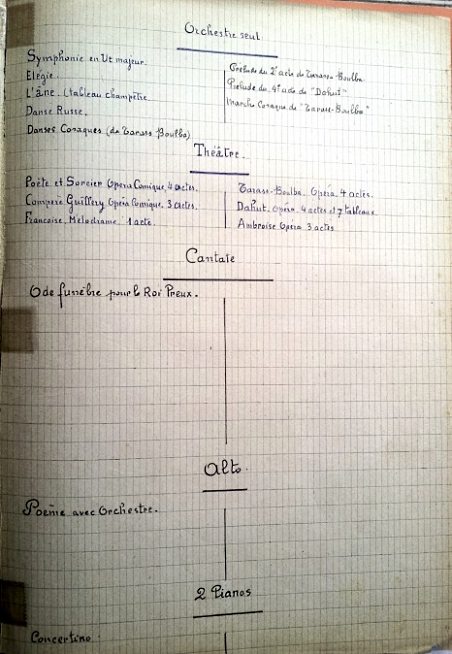 Orchestre seul
Symphonie en Ut majeur.
Elégie.
L'âne. (tableau champêtre
Danse Russe.
Danses Cosaques (de Tarass Boulba)
Prélude du 2e acte de Tarass-Boulba
Prélude du 4e acte de "Dahut"
Marche Cosaque de "Tarass-Boulba"
Théâtre.
Poète et Sorcier Opéra Comique, 4 actes.
Compère Guillery Opéra Comique. 3 actes.
Francoise. Mélodrame. 1 acte.
Tarass-Boulba. Opéra. 4 actes.
Dahut. Opéra. 4 actes et 7 tableaux
Ambroise Opéra 3 actes
Cantate
Ode funèbre pour le Roi Preux.
Alto.
Poème avec Orchestre.
2 Pianos
Concertino.